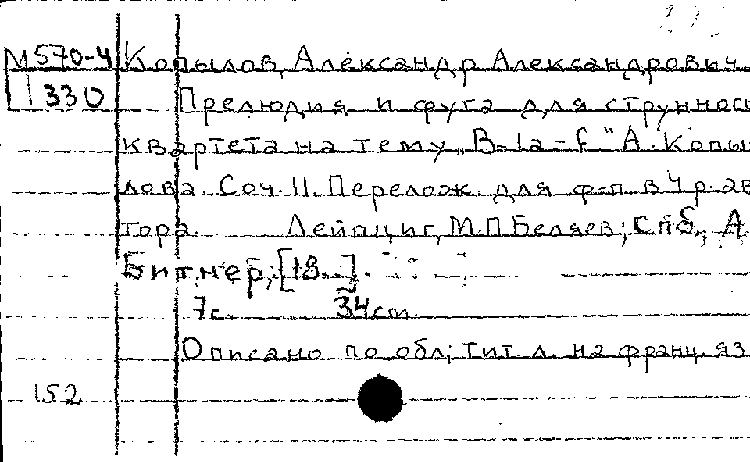 М570-4 Копылов, Александр Александрович.
П 330 Прелюдия и фуга для струнного
квартета на тему „B-la-f" А. Копы-
лова. Соч. 11. Перелож. для ф-п. в 4 р. ав-
тора. Лейпциг, М.П. Беляев; Спб., А.
Битнер, [18..].
7 с. 34 cm
Описано по обл; тит. л. на франц. яз
152